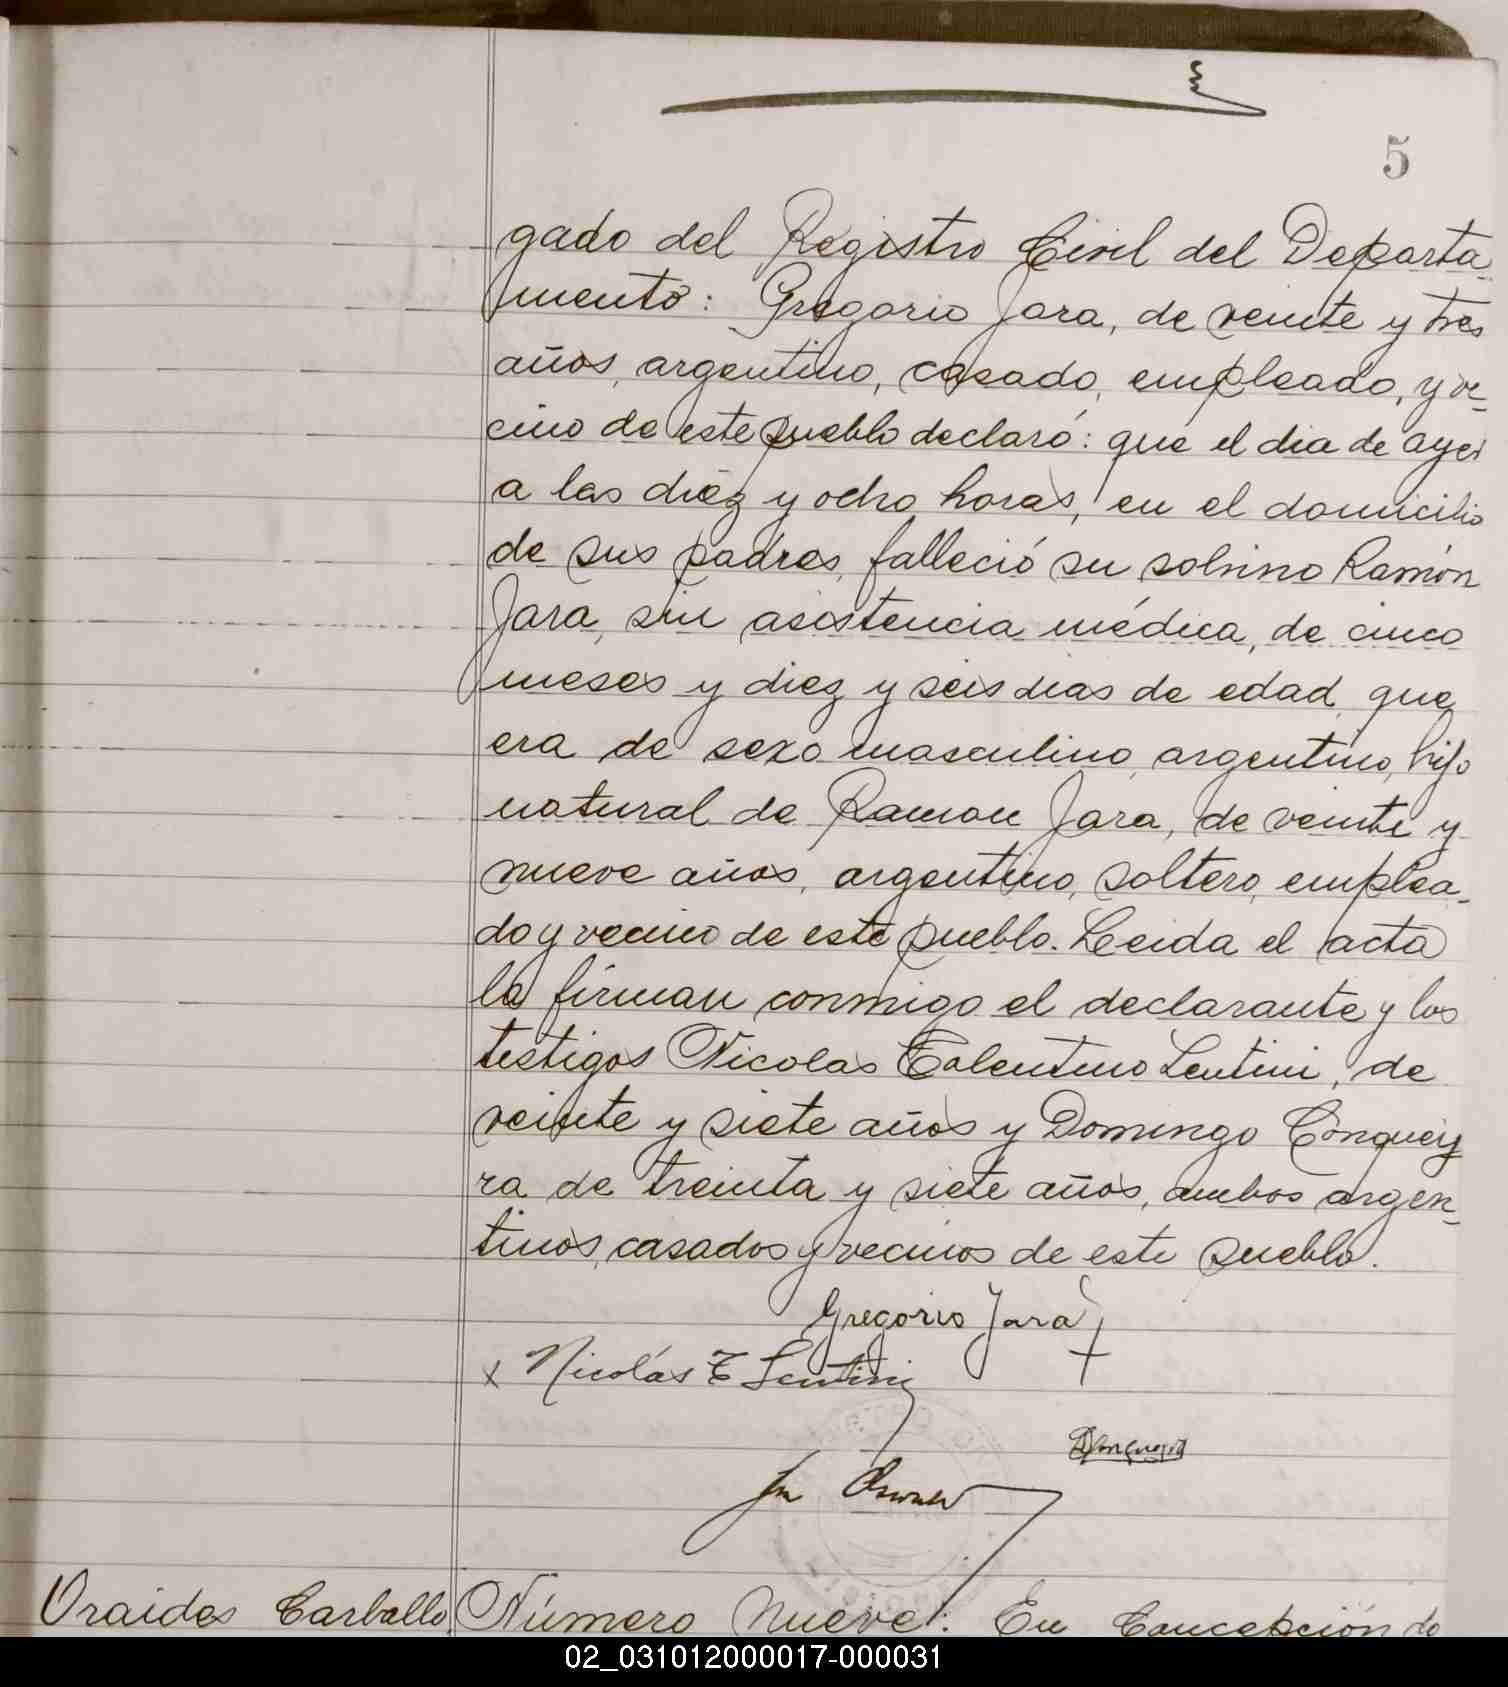 5
gado del Registro Civil del Departa-
mento: Gregorio Jara, de veinte y tres
años, argentino, casado, empleado, y ve-
cino de este pueblo declaró: que el dia de ayer
a las diéz y ocho horas, en el domicilio
de sus padres, falleció su sobrino Ramón
Jara, sin asistencia médica, de cinco
meses y diez y seis dias de edad, que
era de sexo masculino, argentino, hijo
natural de Ramon Jara, de veinte y
nueve años, argentino, soltero, emplea-
do y vecino de este pueblo. Leida el acta
la firman conmigo el declarante y los
testigos Nicolas Tolentino Lentini, de
veinte y siete años y Domingo Conquey
ra de treinta y siete años, ambos argen-
tinos, casados y vecinos de este pueblo.
Gregorio Jara
x Nicolás T Lentini
Oraides Carballo Número nueve: En Concepción de
02_031012000017-000031